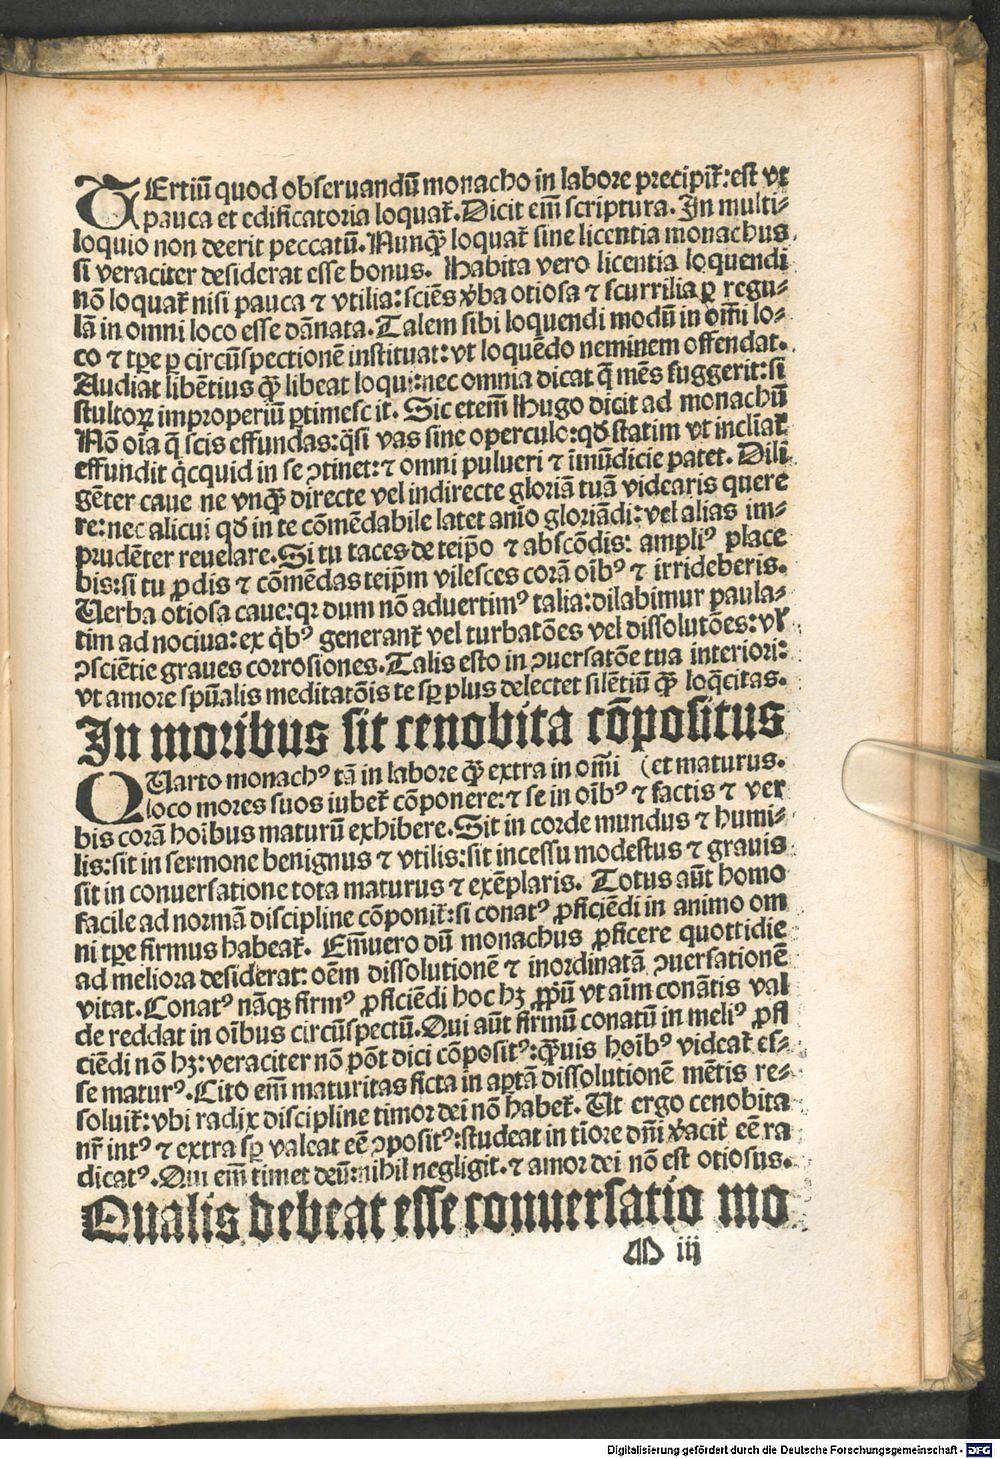 TErtiū quod obseruandū monacho in labore precipit̄: est vt
pauca et edificatoria loquat̄. Dicit em̄ scriptura. In multi-
loquio non deerit peccatū. Nunq̄ꝫ loquat̄ sine licentia monachus
si veraciter desiderat esse bonus. Habita vero licentia loquendi
nō loquat̄ nisi pauca ⁊ vtilia: sciēs v̄ba otiosa ⁊ scurrilia ꝑ regu-
lā in omni loco esse dānata. Talem sibi loquendi modū in om̄i lo-
co ⁊ tꝑe ꝑ circūspectionē instituat: vt loquēdo neminem offendat.
Audiat libētius q̄ꝫ libeat loqui: nec omnia dicat q̄ mēs suggerit: si
stultoꝝ improperiū ꝑtimescit. Sic etem̄ Hugo dicit ad monachū
Nō oīa q̄ scis effundas: q̄si vas sine operculo: qđ statim vt inclīat̄
effundit q̇cquid in se ↄtinet: ⁊ omni pulueri ⁊ īmūdicie patet. Dili
gēter caue ne vnq̄ꝫ directe vel indirecte gloriā tuā videaris quere
re: nec alicui qđ in te cōmēdabile latet anīo gloriādi: vel alias im-
prudēter reuelare. Si tu taces de teip̄o ⁊ abscōdis: ampliꝰ place
bis: si tu ꝓdis ⁊ cōmēdas teip̄m vilesces corā oīb⁹ ⁊ irrideberis.
Verba otiosa caue: qꝛ dum nō aduertim⁹ talia: dilabimur paula-
tim ad nociua: ex q̇b⁹ generant̄ vel turbatōes vel dissolutōes: vl̓
ↄsciētie graues corrosiones. Talis esto in ↄuersatōe tua interiori:
vt amore spūalis meditatōis te sꝑ plus delectet silētiū q̄ꝫ loq̄citas.
In moribus sit cenobita cōpositus
QVarto monach⁹ tā in labore q̄ꝫ extra in om̄i (et maturus.
loco mores suos iubet̄ cōponere: ⁊ se in oīb⁹ ⁊ factis ⁊ ver
bis corā hoībus maturū exhibere. Sit in corde mundus ⁊ humi-
lis: sit in sermone benignus ⁊ vtilis: sit incessu modestus ⁊ grauis
sit in conuersatione tota maturus ⁊ exēplaris. Totus aūt homo
facile ad normā discipline cōponit̄: si conat⁹ ꝓficiēdi in animo om
ni tꝑe firmus habeat̄. Em̄uero dū monachus ꝓficere quottidie
ad meliora desiderat: oēm dissolutionē ⁊ inordinatā ↄuersationē
vitat. Conat⁹ nāqꝫ firm⁹ ꝓficiēdi hoc hꝫ ꝓpiū vt aīm conātis val
de reddat in oībus circūspectū. Qui aūt firmū conatū in meli⁹ ꝓfi
ciēdi nō hꝫ: veraciter nō pōt dici cōposit⁹: q̄ꝫuis hoīb⁹ videat̄ es-
se matur⁹. Cito em̄ maturitas ficta in aꝑtā dissolutionē mētis re-
soluit̄: vbi radix discipline timor dei nō habet̄. Vt ergo cenobita
nr̄ int⁹ ⁊ extra sꝑ valeat eē ↄposit⁹: studeat in tīore dn̄i v̄acit̄ eē ra
dicat⁹. Qui em̄ timet deū: nihil negligit. ⁊ amor dei nō est otiosus.
Qualis debeat esse conuersatio mo
M iij
Digitalisierung gefördert durch die Deutsche Forschungsgemeinschaft - DFG